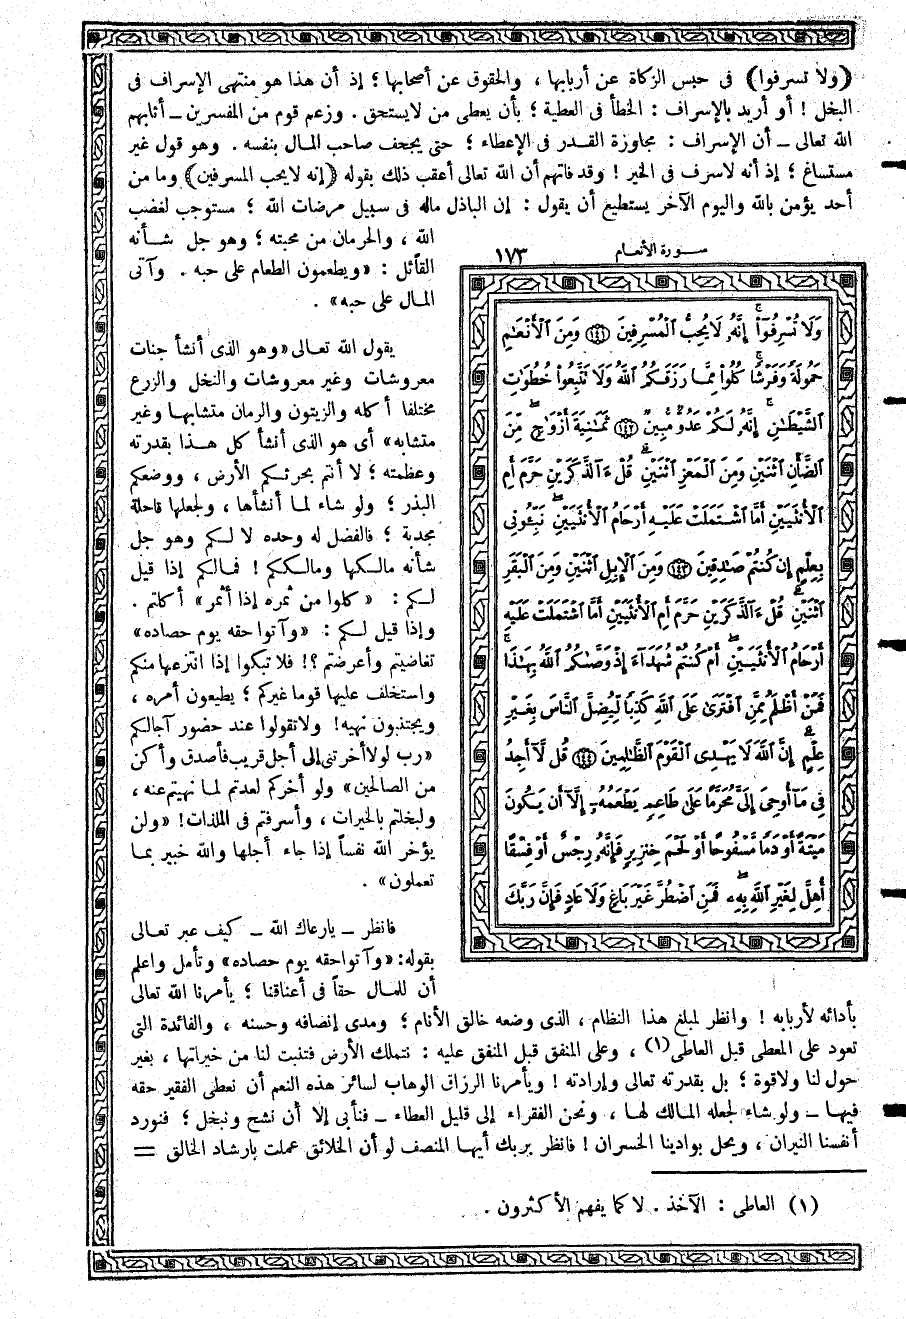 (ولا تسرفوا) فى حبس الزكاة عن أربابها ، والحقوق عن أصحابها ؛ إذ أن هذا هو منتهى الإسراف فى
البخل ! أو أريد بالإسراف : الخطأ فى العطية ؛ بأن يعطى من لايستحق . وزعم قوم من المفسرين ــ أثابهم
الله تعالى ــ أن الإسراف : مجاوزة القدر فى الإعطاء ؛ حتى يجحف صاحب المال بنفسه . وهو قول غير
مستساغ ؛ إذ أنه لاسرف فى الخير ! وقد فاتهم أن الله تعالى أعقب ذلك بقوله (إنه لايحب المسرفين) وما من
أحد يؤمن بالله واليوم الآخر يستطيع أن يقول : إن الباذل ماله فى سبيل مرضات الله ؛ مستوجب لغضب
الله ، والحرمان من محبته ؛ وهو جل شأنه
القائل : «ويطعمون الطعام على حبه . وآتى
المال على حبه» .
يقول الله تعالى «وهو الذى أنشأ جنات
معروشات وغير معروشات والنخل والزرع
مختلفا أكله والزيتون والرمان متشابها وغير
متشابه» أى هو الذى أنشأ كل هذا بقدرته
وعظمته ؛ لا أنتم بحرثكم الأرض ، ووضعكم
البذر ؛ ولو شاء لما أنشأها ، ولجعلها قاحلة
مجدبة ؛ فالفضل له وحده لا لكم وهو جل
شأنه مالكها ومالككم ! فمالكم إذا قيل
لكم : «كلوا من ثمره إذا أثمر» أكلتم .
وإذا قيل لكم : «وآتوا حقه يوم حصاده»
تغاضيتم وأعرضتم ؟! فلا تبكوا إذا انتزعها منكم
واستخلف عليها قوما غيركم ؛ يطيعون أمره ،
ويجتنبون نهيه! ولاتقولوا عند حضور آجالكم
«رب لولا أخرتنى إلى أجل قريب فأصدق وأكن
من الصالحين» ولو أخركم لعدتم لما نهيتم عنه ،
ولبخلتم بالخيرات ، وأسرفتم فى الملذات! «ولن
يؤخر الله نفساً إذا جاء أجلها والله خبير بما
تعملون» .
فانظر ــ يارعاك الله ــ كيف عبر تعالى
بقوله: «وآتوا حقه يوم حصاده» وتأمل واعلم
أن للمال حقاً فى أعناقنا ؛ يأمرنا الله تعالى
سورة الأنعام ١٧٣
وَلَا تُسْرِفُوٓا۟ إِنَّهُۥ لَا يُحِبُّ ٱلْمُسْرِفِينَ ١٤١ وَمِنَ ٱلْأَنْعَٰمِ
حَمُولَةً وَفَرْشًا كُلُوا۟ مِمَّا رَزَقَكُمُ ٱللَّهُ وَلَا تَتَّبِعُوا۟ خُطُوَٰتِ
ٱلشَّيْطَٰنِ إِنَّهُۥ لَكُمْ عَدُوٌّ مُّبِينٌ ١٤٢ ثَمَٰنِيَةَ أَزْوَٰجٍ مِّنَ
ٱلضَّأْنِ ٱثْنَيْنِ وَمِنَ ٱلْمَعْزِ ٱثْنَيْنِ قُلْ ءَآلذَّكَرَيْنِ حَرَّمَ أَمِ
ٱلْأُنثَيَيْنِ أَمَّا ٱشْتَمَلَتْ عَلَيْهِ أَرْحَامُ ٱلْأُنثَيَيْنِ نَبِّـُٔونِى
بِعِلْمٍ إِن كُنتُمْ صَٰدِقِينَ ١٤٣ وَمِنَ ٱلْإِبِلِ ٱثْنَيْنِ وَمِنَ ٱلْبَقَرِ
ٱثْنَيْنِ قُلْ ءَآلذَّكَرَيْنِ حَرَّمَ أَمِ ٱلْأُنثَيَيْنِ أَمَّا ٱشْتَمَلَتْ عَلَيْهِ
أَرْحَامُ ٱلْأُنثَيَيْنِ أَمْ كُنتُمْ شُهَدَآءَ إِذْ وَصَّىٰكُمُ ٱللَّهُ بِهَٰذَا
فَمَنْ أَظْلَمُ مِمَّنِ ٱفْتَرَىٰ عَلَى ٱللَّهِ كَذِبًا لِّيُضِلَّ ٱلنَّاسَ بِغَيْرِ
عِلْمٍ إِنَّ ٱللَّهَ لَا يَهْدِى ٱلْقَوْمَ ٱلظَّٰلِمِينَ ١٤٤ قُل لَّآ أَجِدُ
فِى مَآ أُوحِىَ إِلَىَّ مُحَرَّمًا عَلَىٰ طَاعِمٍ يَطْعَمُهُۥٓ إِلَّآ أَن يَكُونَ
مَيْتَةً أَوْ دَمًا مَّسْفُوحًا أَوْ لَحْمَ خِنزِيرٍ فَإِنَّهُۥ رِجْسٌ أَوْ فِسْقًا
أُهِلَّ لِغَيْرِ ٱللَّهِ بِهِۦ فَمَنِ ٱضْطُرَّ غَيْرَ بَاغٍ وَلَا عَادٍ فَإِنَّ رَبَّكَ
بأدائه لأربابه ! وانظر لمبلغ هذا النظام ، الذى وضعه خالق الأنام ؛ ومدى إنصافه وحسنه ، والفائدة التى
تعود على المعطى قبل العاطى(١) ، وعلى المنفق قبل المنفق عليه : نتملك الأرض فتنبت لنا من خيراتها ، بغير
حول لنا ولاقوة ؛ بل بقدرته تعالى وإرادته ! ويأمرنا الرزاق الوهاب لسائر هذه النعم أن نعطى الفقير حقه
فيها ــ ولو شاء لجعله المالك لها ، ونحن الفقراء إلى قليل العطاء ــ فنأبى إلا أن نشح ونبخل ؛ فنورد
أنفسنا النيران ، ويحل بوادينا الخسران ! فانظر بربك أيها المنصف لو أن الخلائق عملت بإرشاد الخالق =
(١) العاطى : الآخذ . لا كما يفهم الأكثرون .